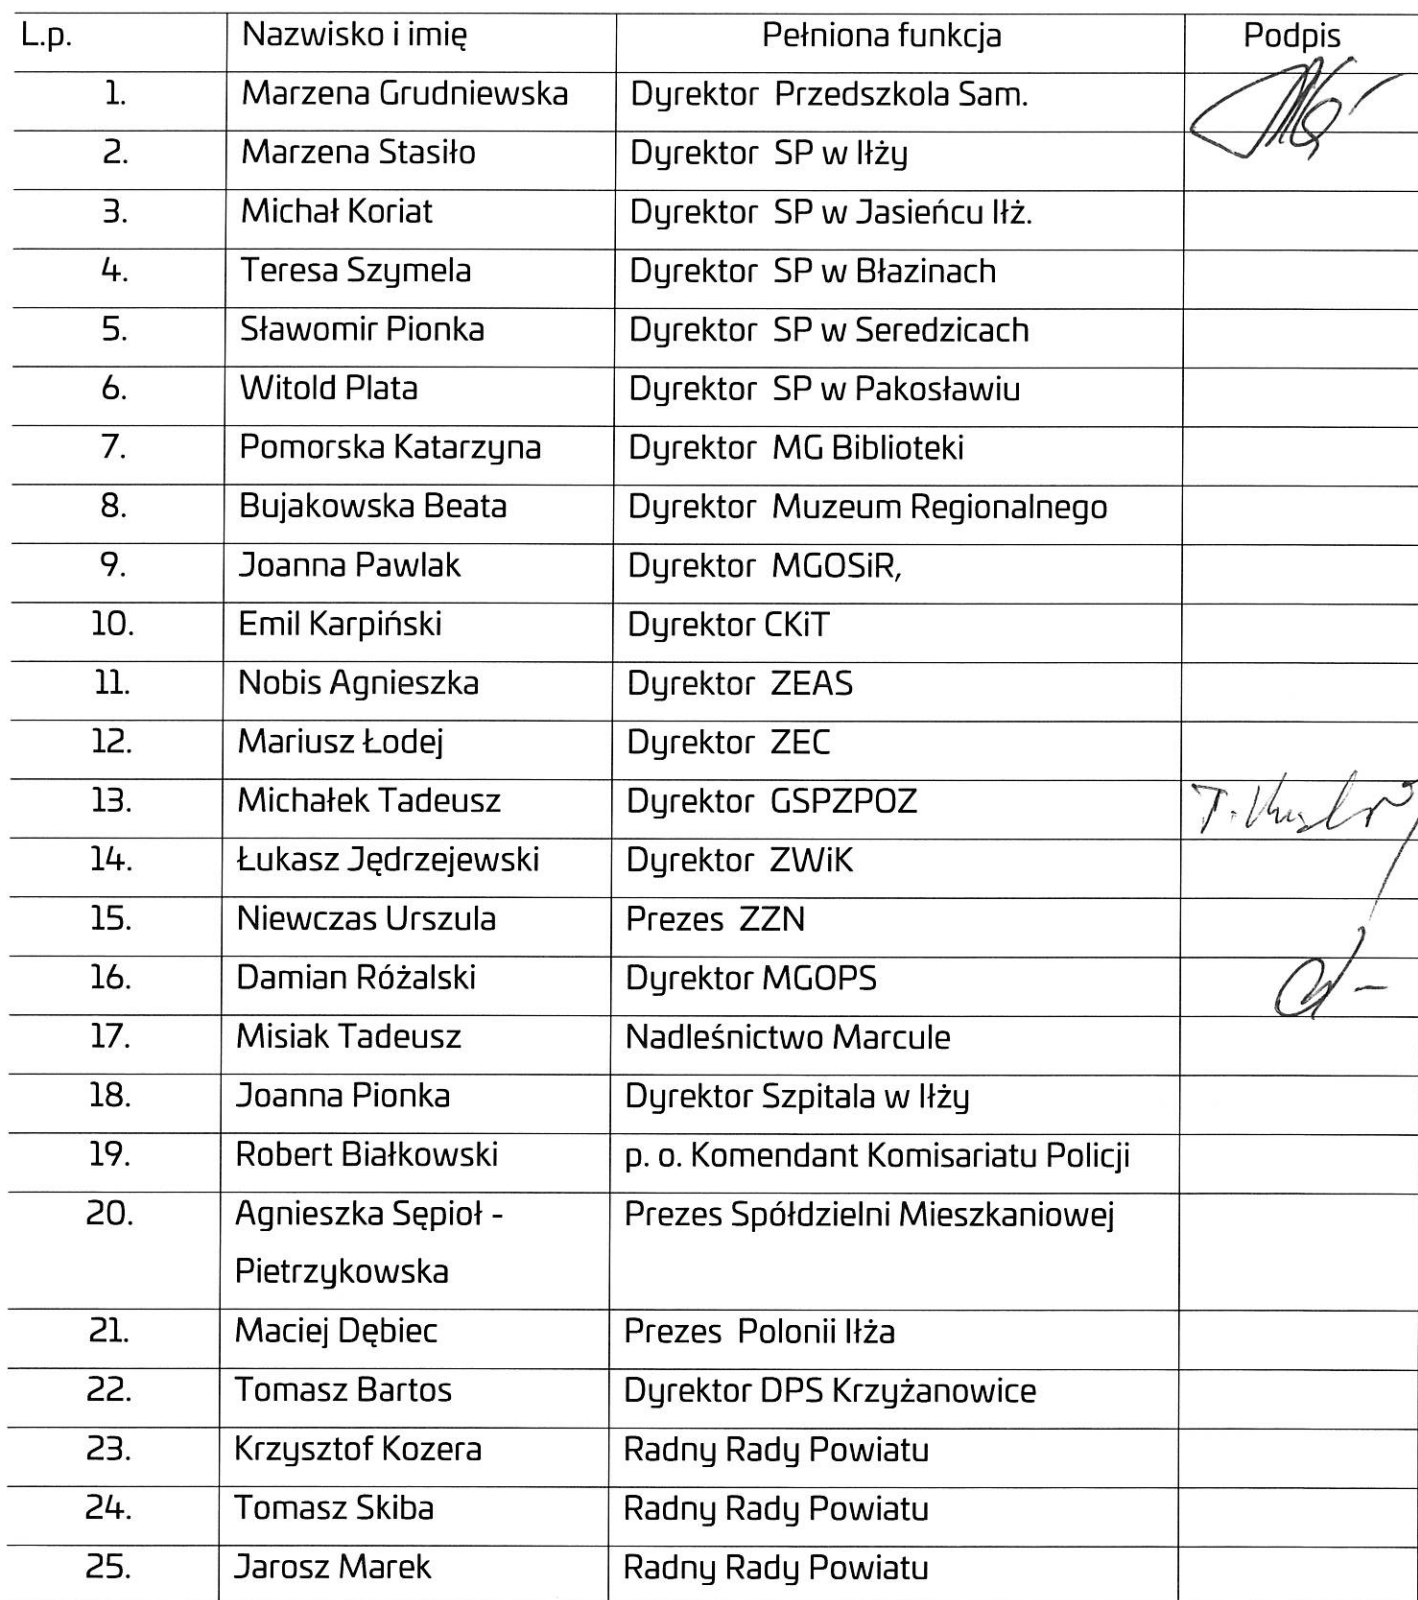 L.p. Nazwisko i imię Pełniona funkcja Podpis
1. Marzena Grudniewska Dyrektor Przedszkola Sam.
2. Marzena Stasiło Dyrektor SP w Iłży
3. Michał Koriat Dyrektor SP w Jasieńcu Iłż.
4. Teresa Szymela Dyrektor SP w Błazinach
5. Sławomir Pionka Dyrektor SP w Seredzicach
6. Witold Plata Dyrektor SP w Pakosławiu
7. Pomorska Katarzyna Dyrektor MG Biblioteki
8. Bujakowska Beata Dyrektor Muzeum Regionalnego
9. Joanna Pawlak Dyrektor MGOSiR,
10. Emil Karpiński Dyrektor CKiT
11. Nobis Agnieszka Dyrektor ZEAS
12. Mariusz Łodej Dyrektor ZEC
13. Michałek Tadeusz Dyrektor GSPZPOZ
14. Łukasz Jędrzejewski Dyrektor ZWiK
15. Niewczas Urszula Prezes ZZN
16. Damian Różalski Dyrektor MGOPS
17. Misiak Tadeusz Nadleśnictwo Marcule
18. Joanna Pionka Dyrektor Szpitala w Iłży
19. Robert Białkowski p. o. Komendant Komisariatu Policji
20. Agnieszka Sępioł - Prezes Spółdzielni Mieszkaniowej
Pietrzykowska
21. Maciej Dębiec Prezes Polonii Iłża
22. Tomasz Bartos Dyrektor DPS Krzyżanowice
23. Krzysztof Kozera Radny Rady Powiatu
24. Tomasz Skiba Radny Rady Powiatu
25. Jarosz Marek Radny Rady Powiatu